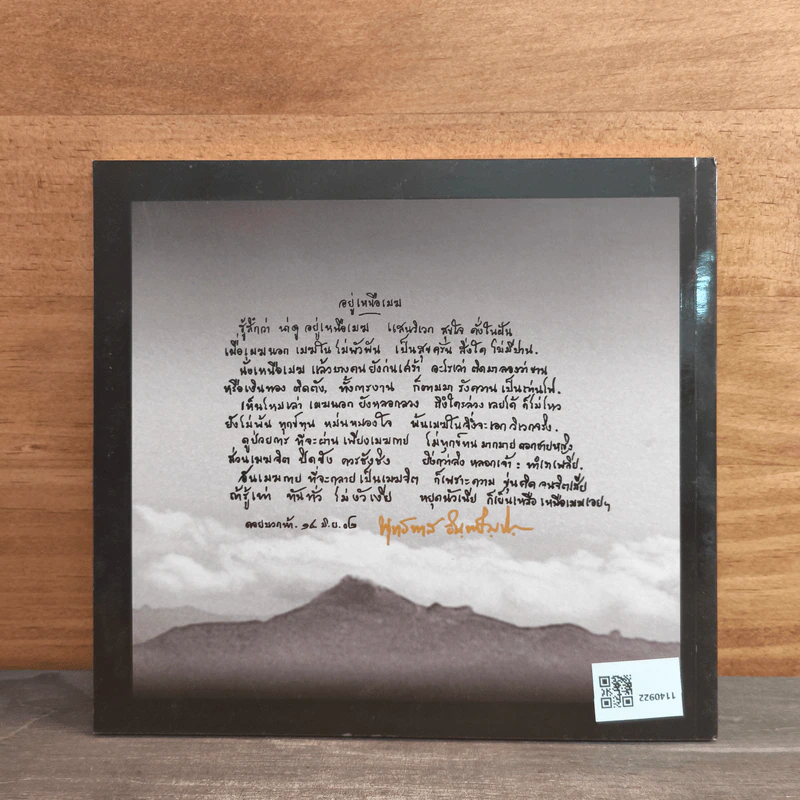 อยู่เหนือเมฆ
รู้สึกว่า น่าดู อยู่เหนือเมฆ แสนวิเวก สุขใจ ดั่งในฝัน
เมื่อเมฆนอก เมฆใน ไม่พัวพัน เป็นสุขครัน สิ่งใด ไม่มีปาน.
นั่งเหนือเมฆ แล้วบางคน ยังก่นเศร้า อะไรเล่า ติดมา
หรือเงินทอง ติดตัง, ทั้งการงาน ก็ตามมา รังควาน เป็นเช่นไฟ.
เห็นไหมเล่า เมฆนอก ยังหลอกลวง ถึงใครล่วง เลยได้ ก็ไม่ไหว
ยังไม่พ้น ทุกข์ทน หม่นหมองใจ พ้นเมฆใน จึงจะเอก วิเวกจริง.
ดูป่วยการ ที่จะผ่าน เพียงเมฆกาย ไม่ทุกข์ทน มากมาย ดอกชายหญิง
ส่วนเมฆจิต ปิดขัง ควรชังชิง ยิ่งกว่าสิ่ง หลอกเจ้า:
อันเมฆกาย ที่จะกลาย เป็นเมฆจิต ก็เพราะความ
ถ้ารู้เท่า ทันทั่ว ไม่ ก็เย็นเหลือ เหนือเมฆเอยฯ
๑๔ มิ.ย.
พุทธทาส อินทปัญโญ
1140922